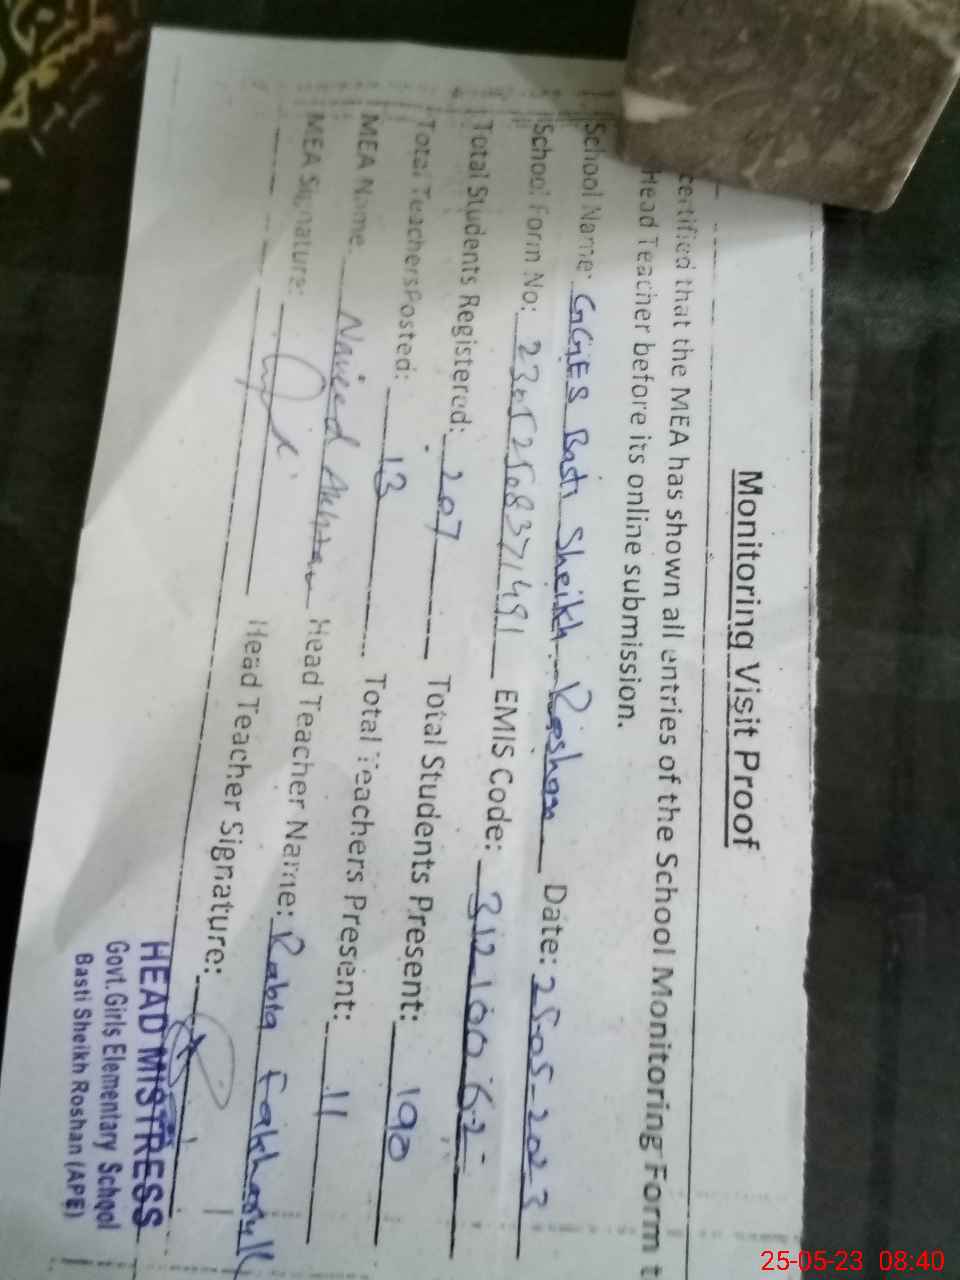 Monitoring Visit Proof
certified that the MEA has shown all entries of the School Monitoring Form t
Head Teacher before its online submission.
School Name: GGES Basti Sheikh Roshan Date: 25-05-2023
School Form No: EMIS Code: 31210062
Total Students Registered: 207 Total Students Present: 190
Total Teachers Posted: 13 Total Teachers Present: 11
MEA Name: Naveed Akhtar Head Teacher Name: Rabia
MEA Signature: Head Teacher Signature:
HEAD MISTRESS
Govt. Girls Elementary School
Basti Sheikh Roshan (APE)
25-05-23 08:40